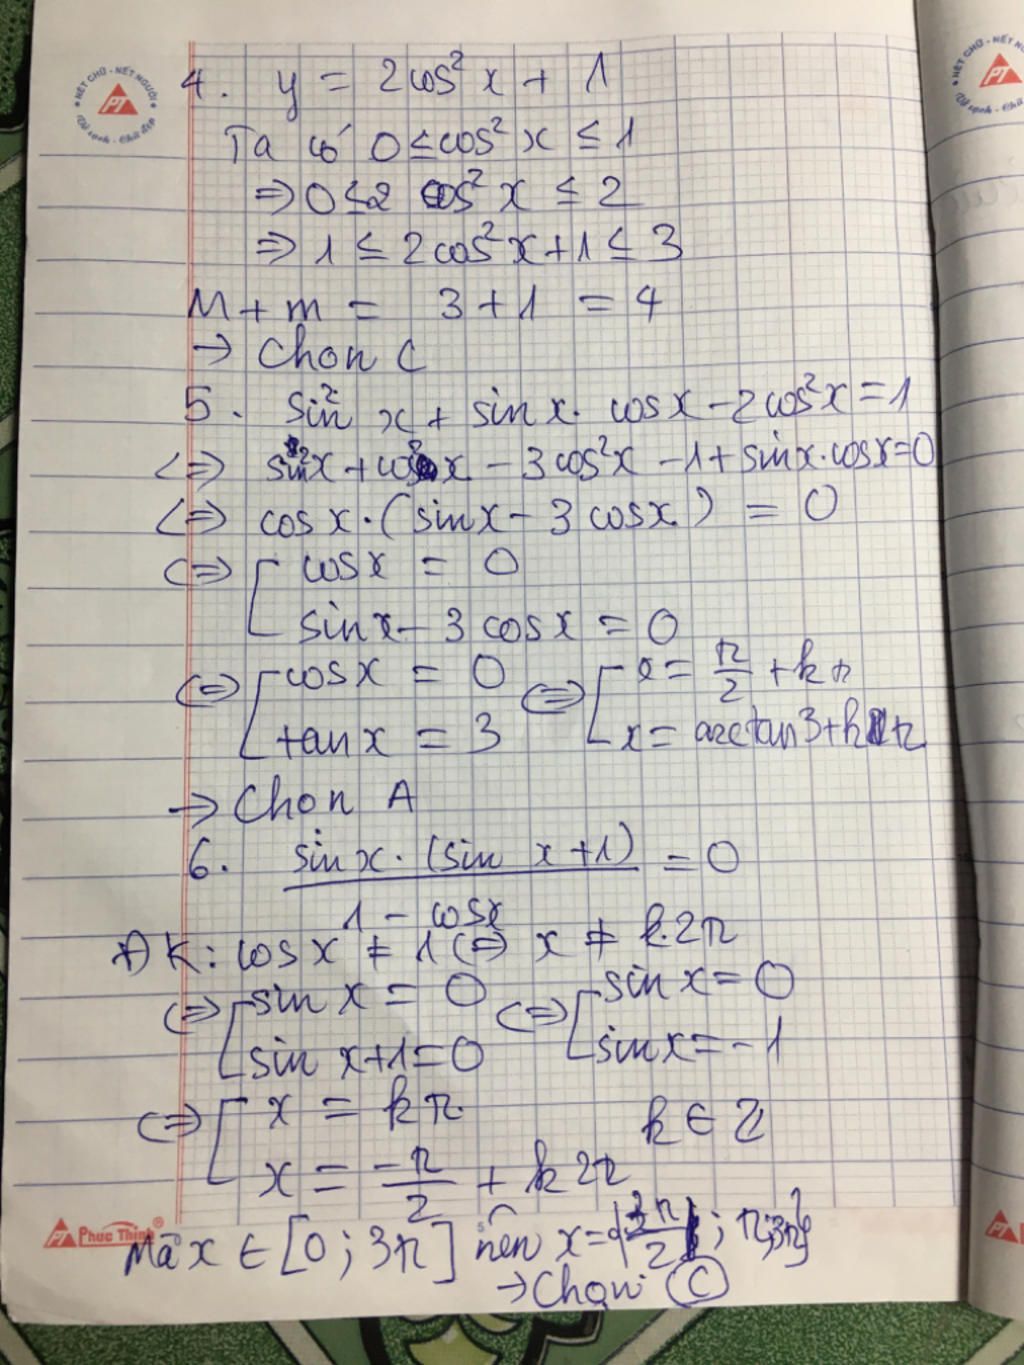 NÉT CHỮ - NẾT NGƯỜI
PT
Vở sạch - Chữ đẹp
4. y = 2cos² x + 1
Ta có 0 ≤ cos² x ≤ 1
⇒ 0 ≤ 2 cos² x ≤ 2
⇒ 1 ≤ 2cos² x + 1 ≤ 3
M + m = 3 + 1 = 4
→ Chọn C
5. sin² x + sin x. cosx - 2cos²x = 1
<=> sin²x + cos²x - 3cos²x - 1 + sinx.cosx = 0
<=> cos x.(sinx - 3 cosx) = 0
<=> [ cosx = 0
sinx - 3 cosx = 0
<=> [ cosx = 0 <=> [ x = π/2 + kπ
tanx = 3 x = arctan3 + kπ
→ Chọn A
6. sin x. (sin x + 1) = 0
1 - cosx
ĐK: cosx ≠ 1 <=> x ≠ k.2π
<=> [ sin x = 0 <=> [ sin x = 0
sin x + 1 = 0 sinx = -1
<=> [ x = kπ k ∈ Z
x = -π/2 + k2π
PT Phúc Thịnh®
Mà x ∈ [0; 3π] nên x = {3π/2; π; 3π}
→ Chọn C